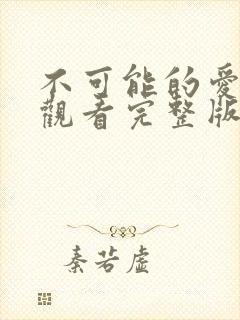 不可能的愛
觀看完整版
秦若虛